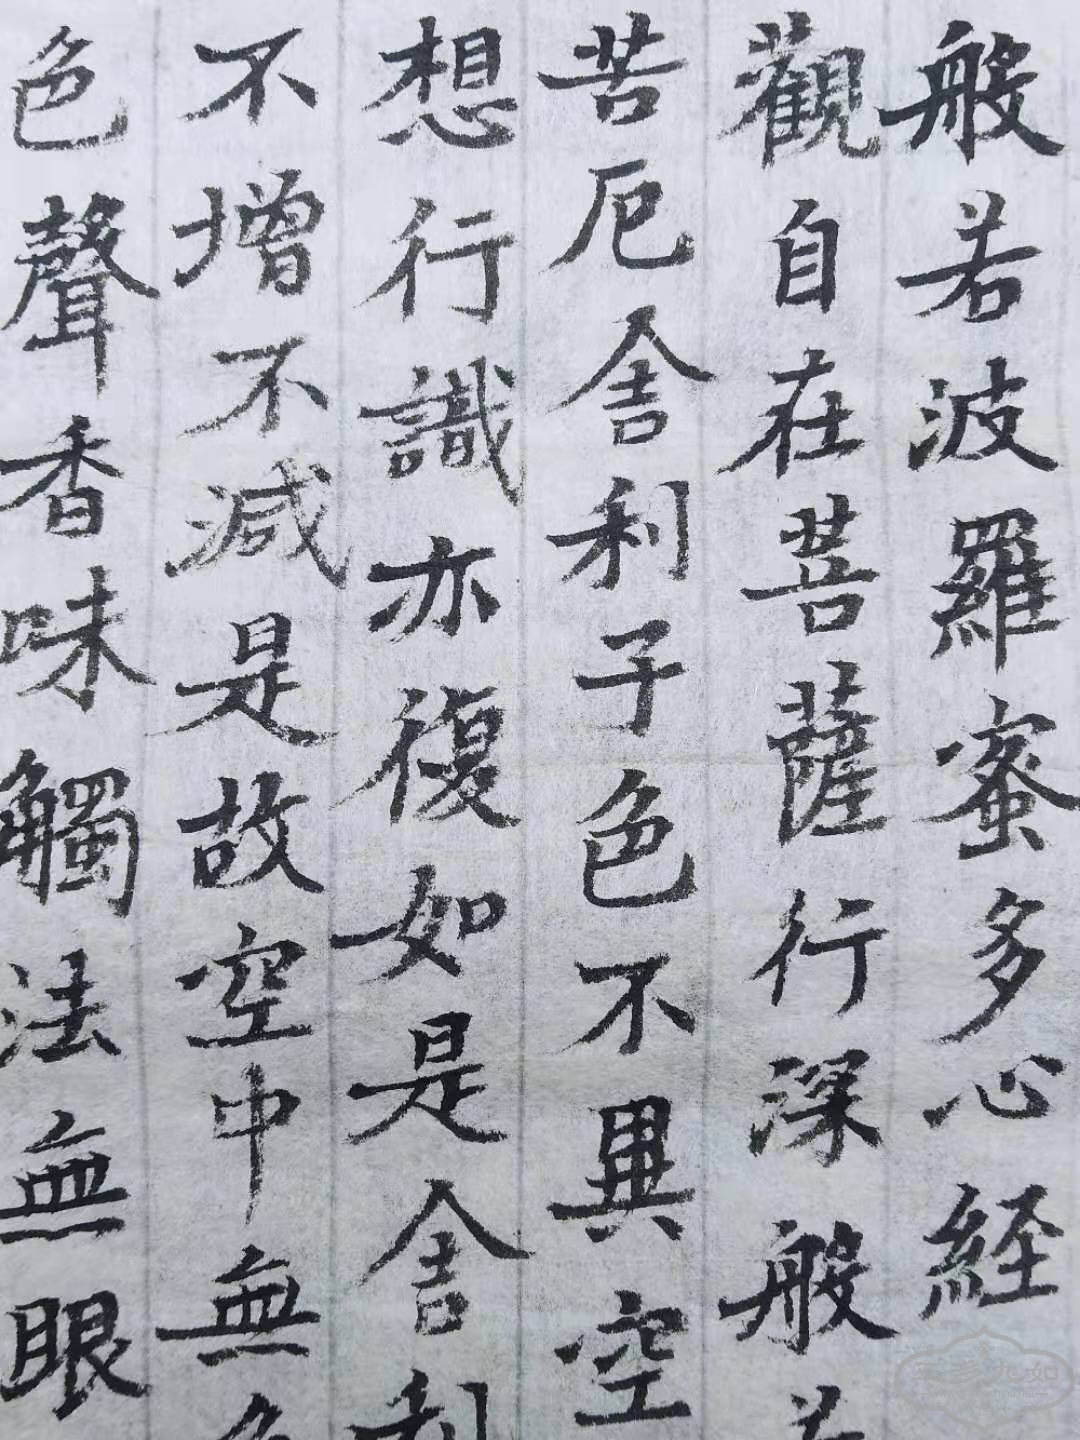 般若波羅蜜多心経
觀自在菩薩行深般若
苦厄舍利子色不異空
想行識亦復如是舍利
不增不減是故空中無色
色聲香味觸法無眼